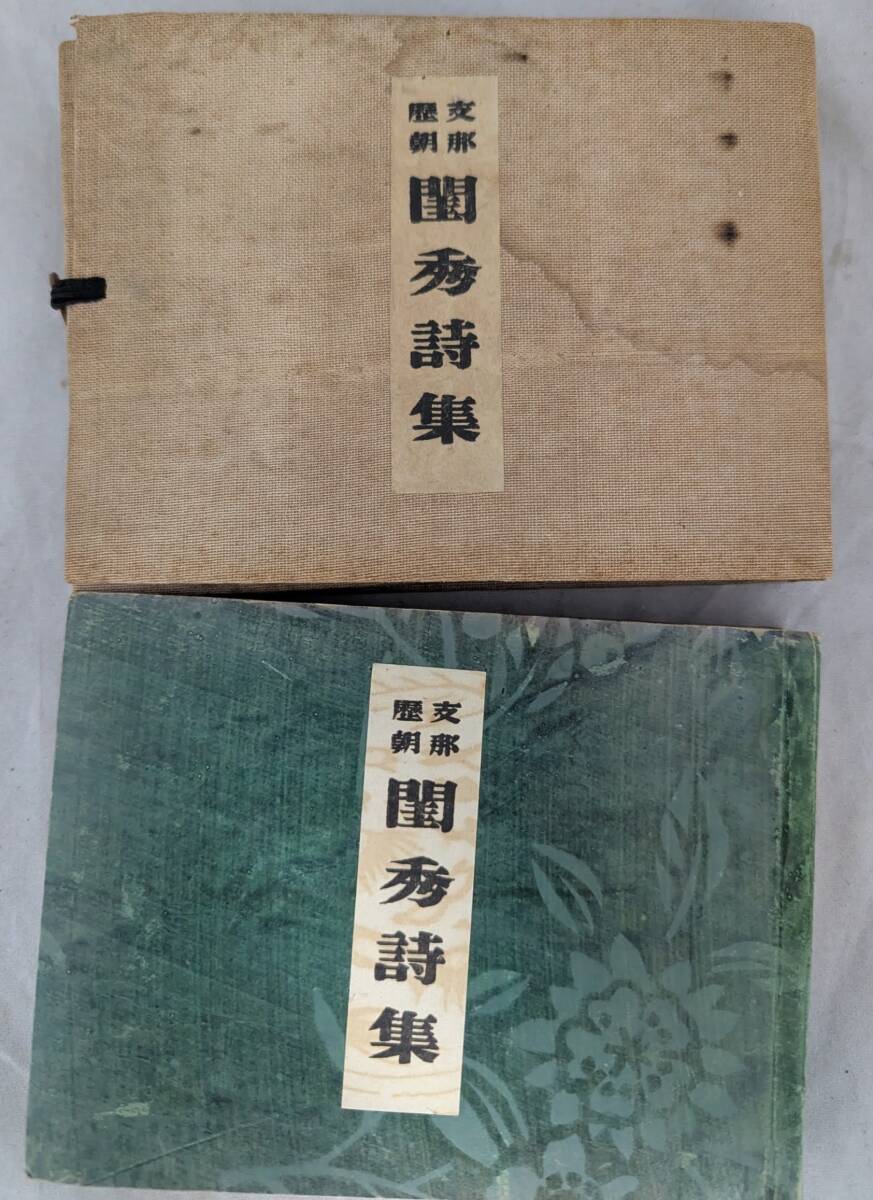 支那
歴朝
閨秀詩集
支那
歴朝
閨秀詩集